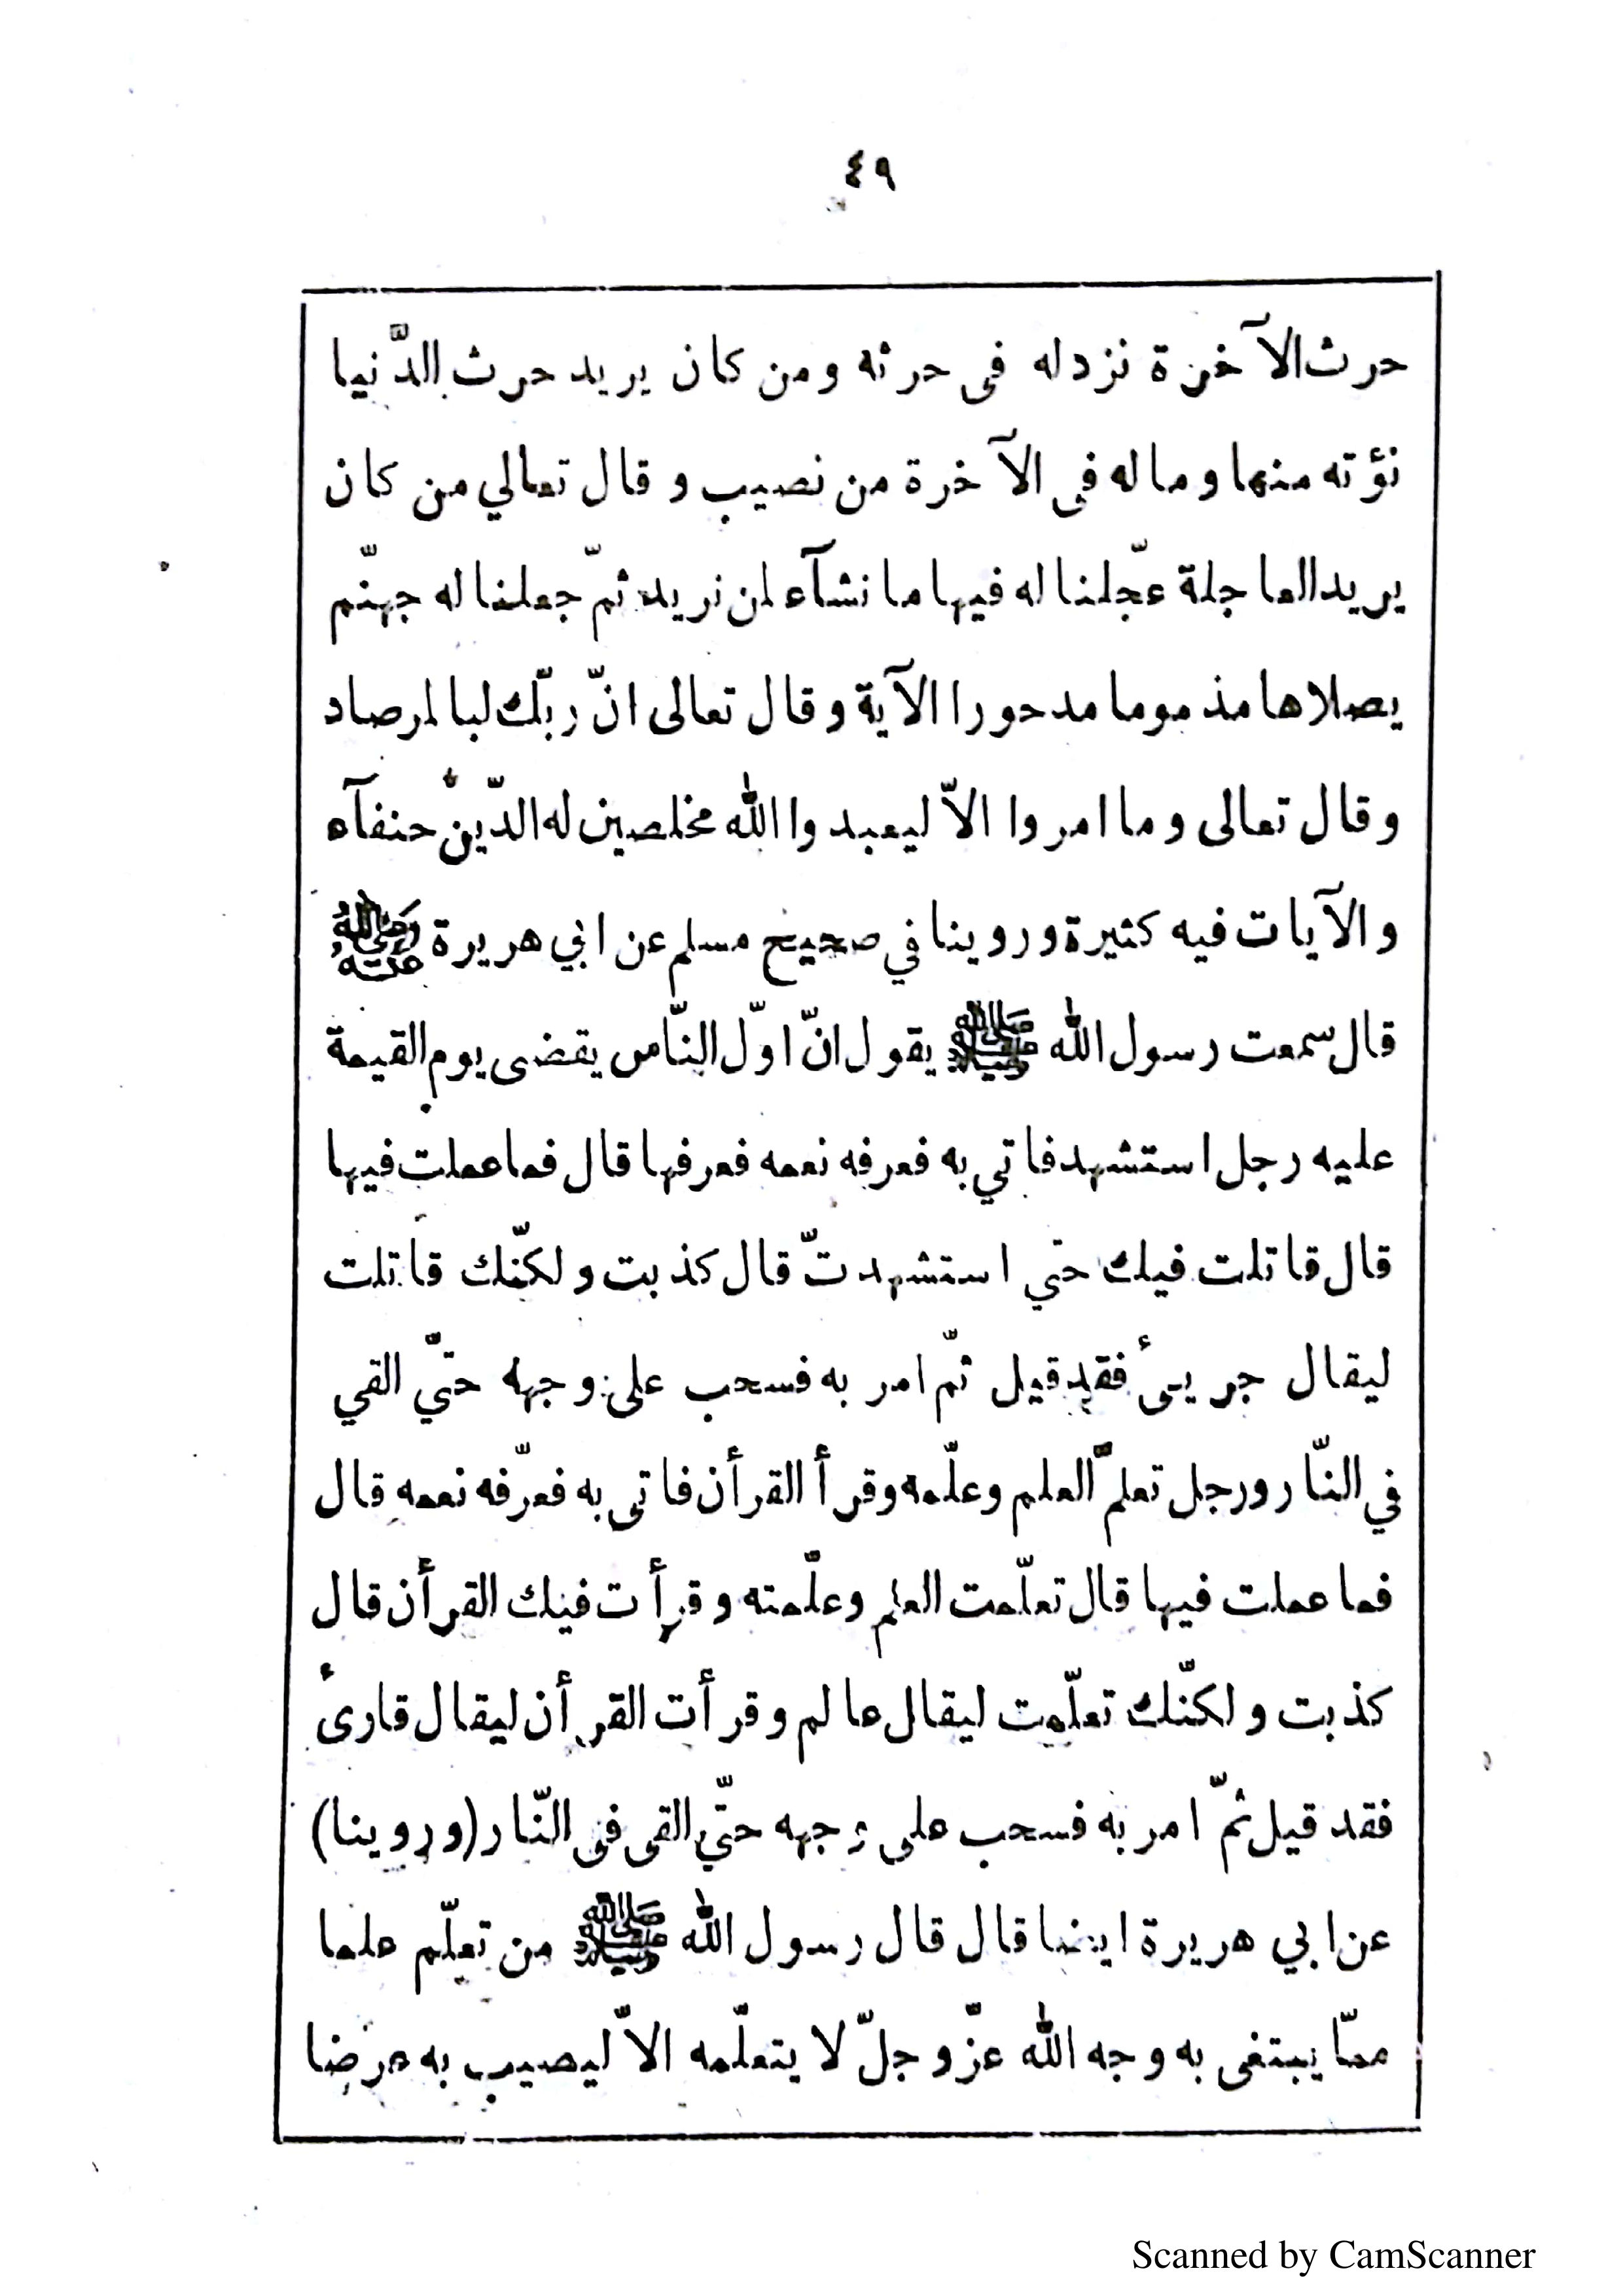 ٤٩
حرث الآخرة نزدله فى حرثه ومن كان يريد حرث الدّنيا
نؤته منها وماله فى الآخرة من نصيب وقال تعالي من كان
يريد العاجلة عجّلنا له فيها ما نشآء لمن نريد ثمّ جعلنا له جهنّم
يصلاها مذموما مدحورا الآية وقال تعالى انّ ربّك لبالمرصاد
وقال تعالى وما امروا الاّ ليعبدوا الله مخلصين له الدّين حنفآء
والآيات فيه كثيرة وروينا في صحيح مسلم عن ابي هريرة رضي الله عنه
قال سمعت رسول الله ﷺ يقول انّ اوّل النّاس يقضى يوم القيمة
عليه رجل استشهد فاتي به فعرفه نعمه فعرفها قال فما عملت فيها
قال قاتلت فيك حتي استشهدتّ قال كذبت ولكنّك قاتلت
ليقال جريئ فقد قيل ثمّ امر به فسحب على وجهه حتّي القي
في النّار ورجل تعلمّ العلم وعلّمه وقرأ القرأن فاتى به فعرّفه نعمه قال
فما عملت فيها قال تعلّمت العلم وعلّمته وقرأت فيك القرأن قال
كذبت ولكنّك تعلّمت ليقال عالم وقرأت القرأن ليقال قارئ
فقد قيل ثمّ امر به فسحب على وجهه حتّي القى فى النّار (وروينا)
عن ابي هريرة ايضا قال قال رسول الله ﷺ من تعلّم علما
ممّا يبتغى به وجه الله عزّ وجلّ لا يتعلّمه الاّ ليصيب به عرضا
Scanned by CamScanner